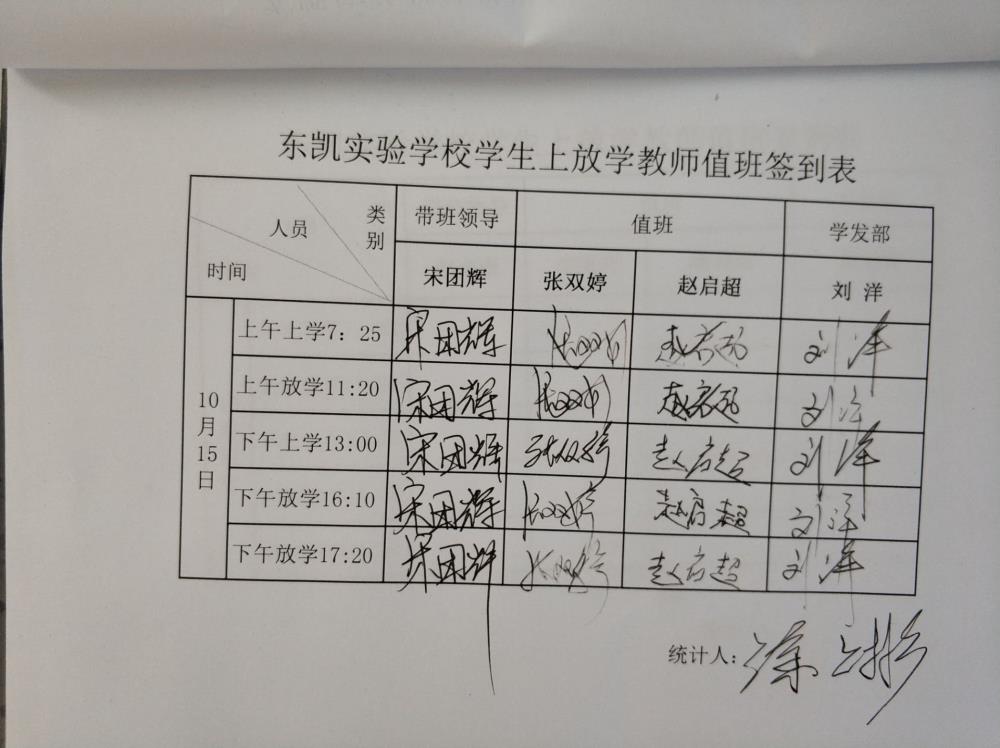 东凯实验学校学生上放学教师值班签到表
人员 类别 时间 带班领导 值班 学发部
宋团辉 张双婷 赵启超 刘 洋
10月15日
上午上学7：25 宋团辉 张双婷 赵启超 刘洋
上午放学11:20 宋团辉 张双婷 赵启超 刘洋
下午上学13:00 宋团辉 张双婷 赵启超 刘洋
下午放学16:10 宋团辉 张双婷 赵启超 刘洋
下午放学17:20 宋团辉 张双婷 赵启超 刘洋
统计人: